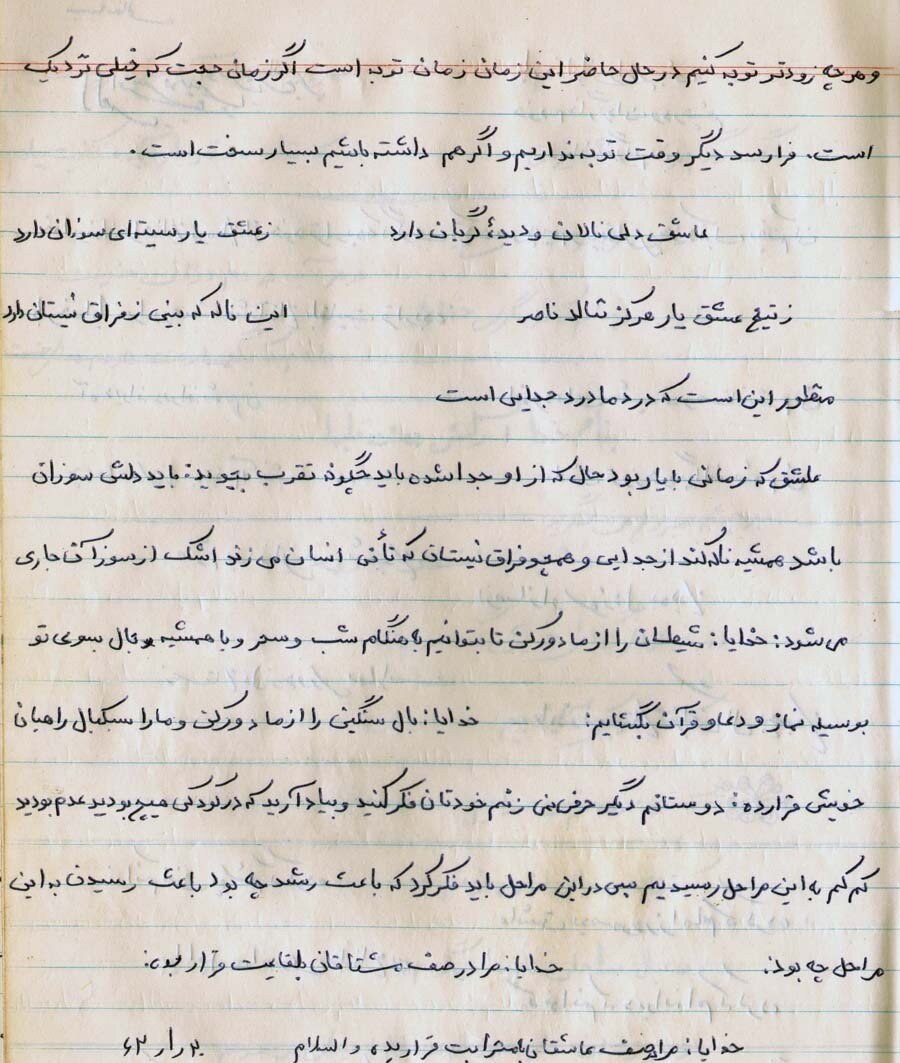 و هر چه زودتر توبه کنیم در حال حاضر این زمان زمان توبه است اگر زمان حجت که خیلی نزدیک
است. فرا رسد دیگر وقت توبه نداریم و اگر هم داشته باشیم بسیار سخت است.
عاشق دلی نالان و دیدهٔ گریان دارد زعشق یار سینه‌ای سوزان دارد
ز تیغ عشق یار هرگز ننالد ناصر این ناله که بینی ز فراق نیستان دارد
منظور این است که درد ما درد جدایی است
عاشق که زمانی با یار بود حال که از او جدا شده باید چگونه تقرب بجوید: باید دلش سوزان
باشد همیشه ناله کند از جدایی و همچو فراق نیستان که تا نی انسان می زند اشک از سوز آن جاری
می شود: خدایا: شیطان را از ما دور کن تا بتوانیم به هنگام شب و سحر و یا همیشه بال بسوی تو
بوسیله نماز و دعا و قرآن بگشایم: خدایا: بال سنگین را از ما دور کن و ما را سبکبال راهیان
خویش قرار ده: دوستانم دیگر حرفی نمی زنم خودتان فکر کنید و بیاد آرید که در کودکی هیچ بودید عدم بودید
کم کم به این مراحل رسیدیم پس در این مراحل باید فکر کرد که باعث رشد چه بود باعث رسیدن به این
مراحل چه بود: خدایا: مرا در صف مشتاقان بلقایت قرار بده:
خدایا: مرا در صف عاشقان قرار بده والسلام